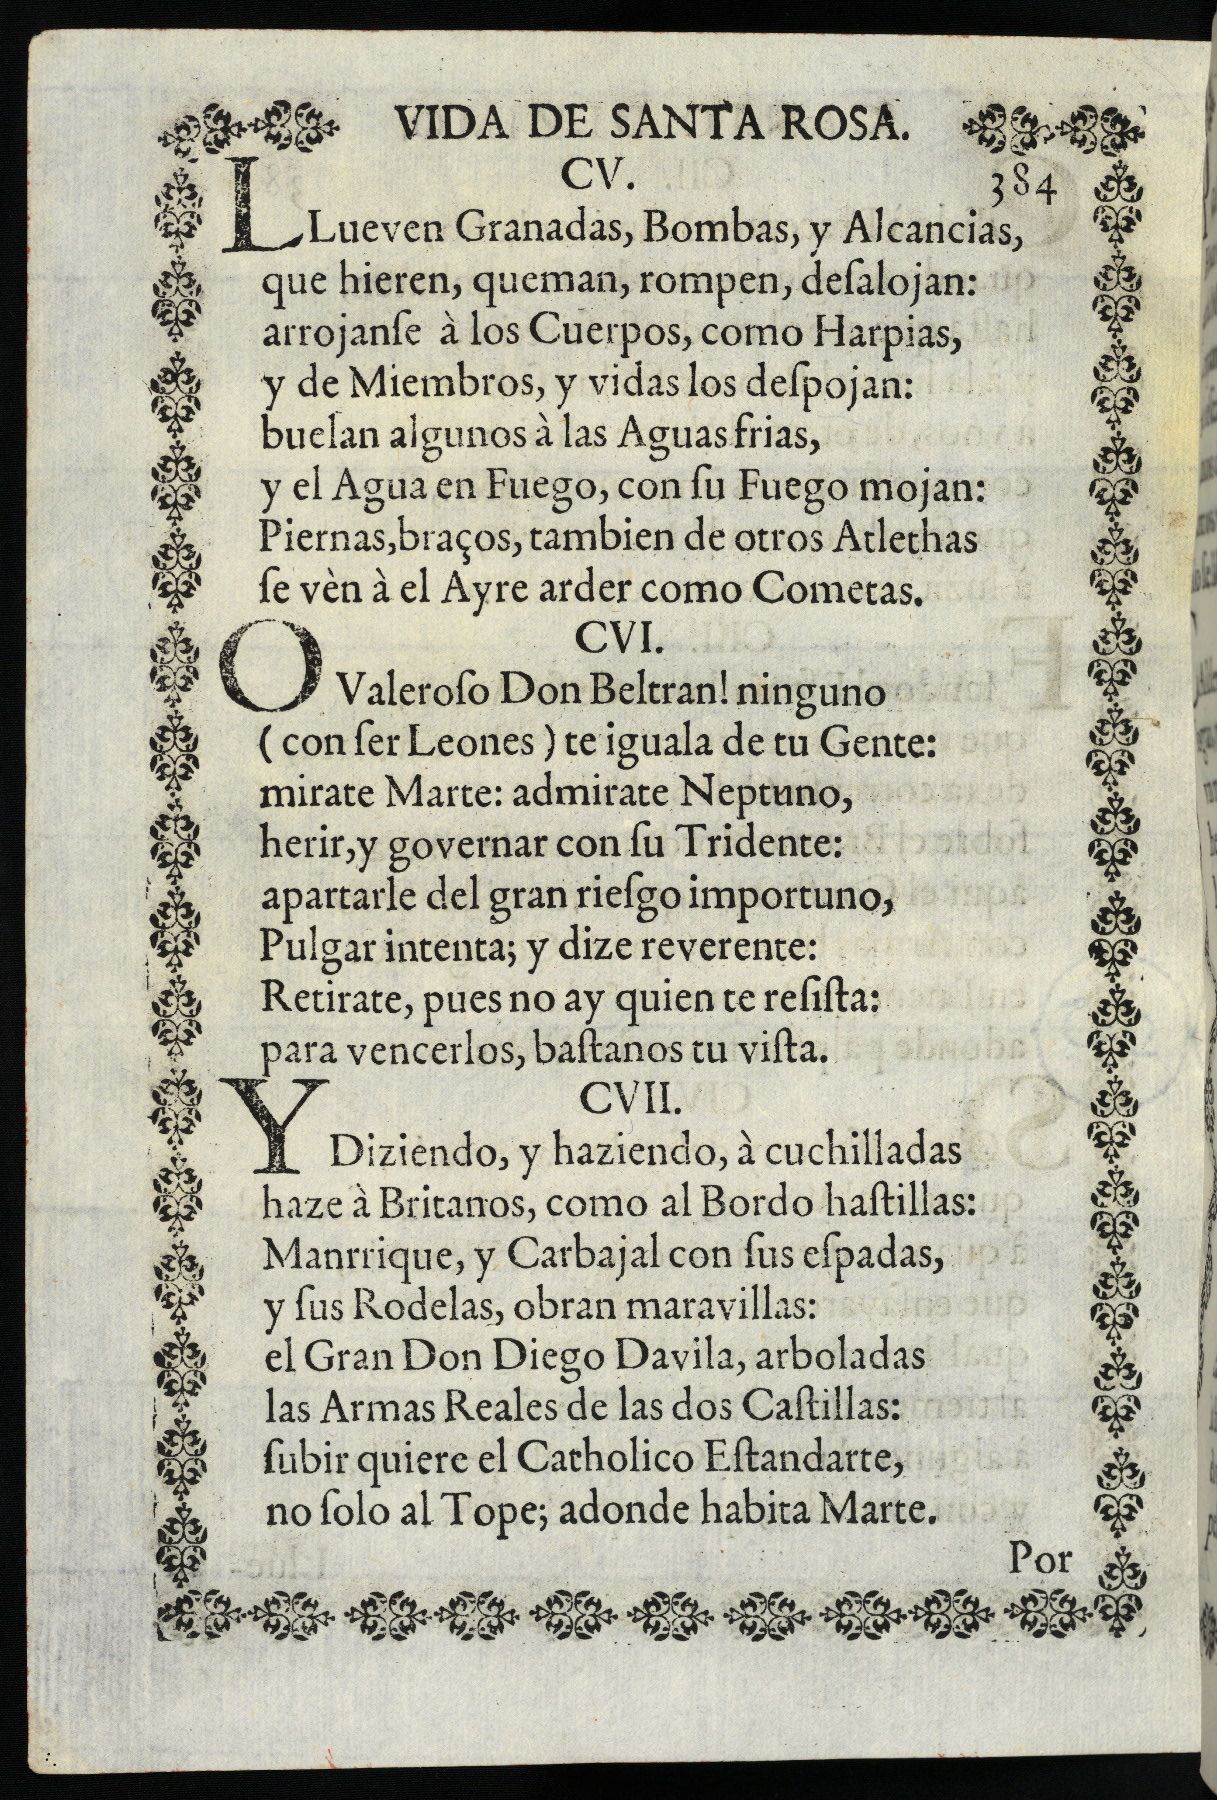 VIDA DE SANTA ROSA.
CV.
384
LLueven Granadas, Bombas, y Alcancias,
que hieren, queman, rompen, deſalojan:
arrojanſe à los Cuerpos, como Harpias,
y de Miembros, y vidas los deſpojan:
buelan algunos à las Aguas frias,
y el Agua en Fuego, con ſu Fuego mojan:
Piernas, braços, tambien de otros Atlethas
ſe vèn à el Ayre arder como Cometas.
CVI.
O Valeroſo Don Beltran! ninguno
( con ſer Leones ) te iguala de tu Gente:
mirate Marte: admirate Neptuno,
herir, y governar con ſu Tridente:
apartarle del gran rieſgo importuno,
Pulgar intenta; y dize reverente:
Retirate, pues no ay quien te reſiſta:
para vencerlos, baſtanos tu viſta.
CVII.
Y Diziendo, y haziendo, à cuchilladas
haze à Britanos, como al Bordo haſtillas:
Manrrique, y Carbajal con ſus eſpadas,
y ſus Rodelas, obran maravillas:
el Gran Don Diego Davila, arboladas
las Armas Reales de las dos Caſtillas:
ſubir quiere el Catholico Eſtandarte,
no ſolo al Tope; adonde habita Marte.
Por